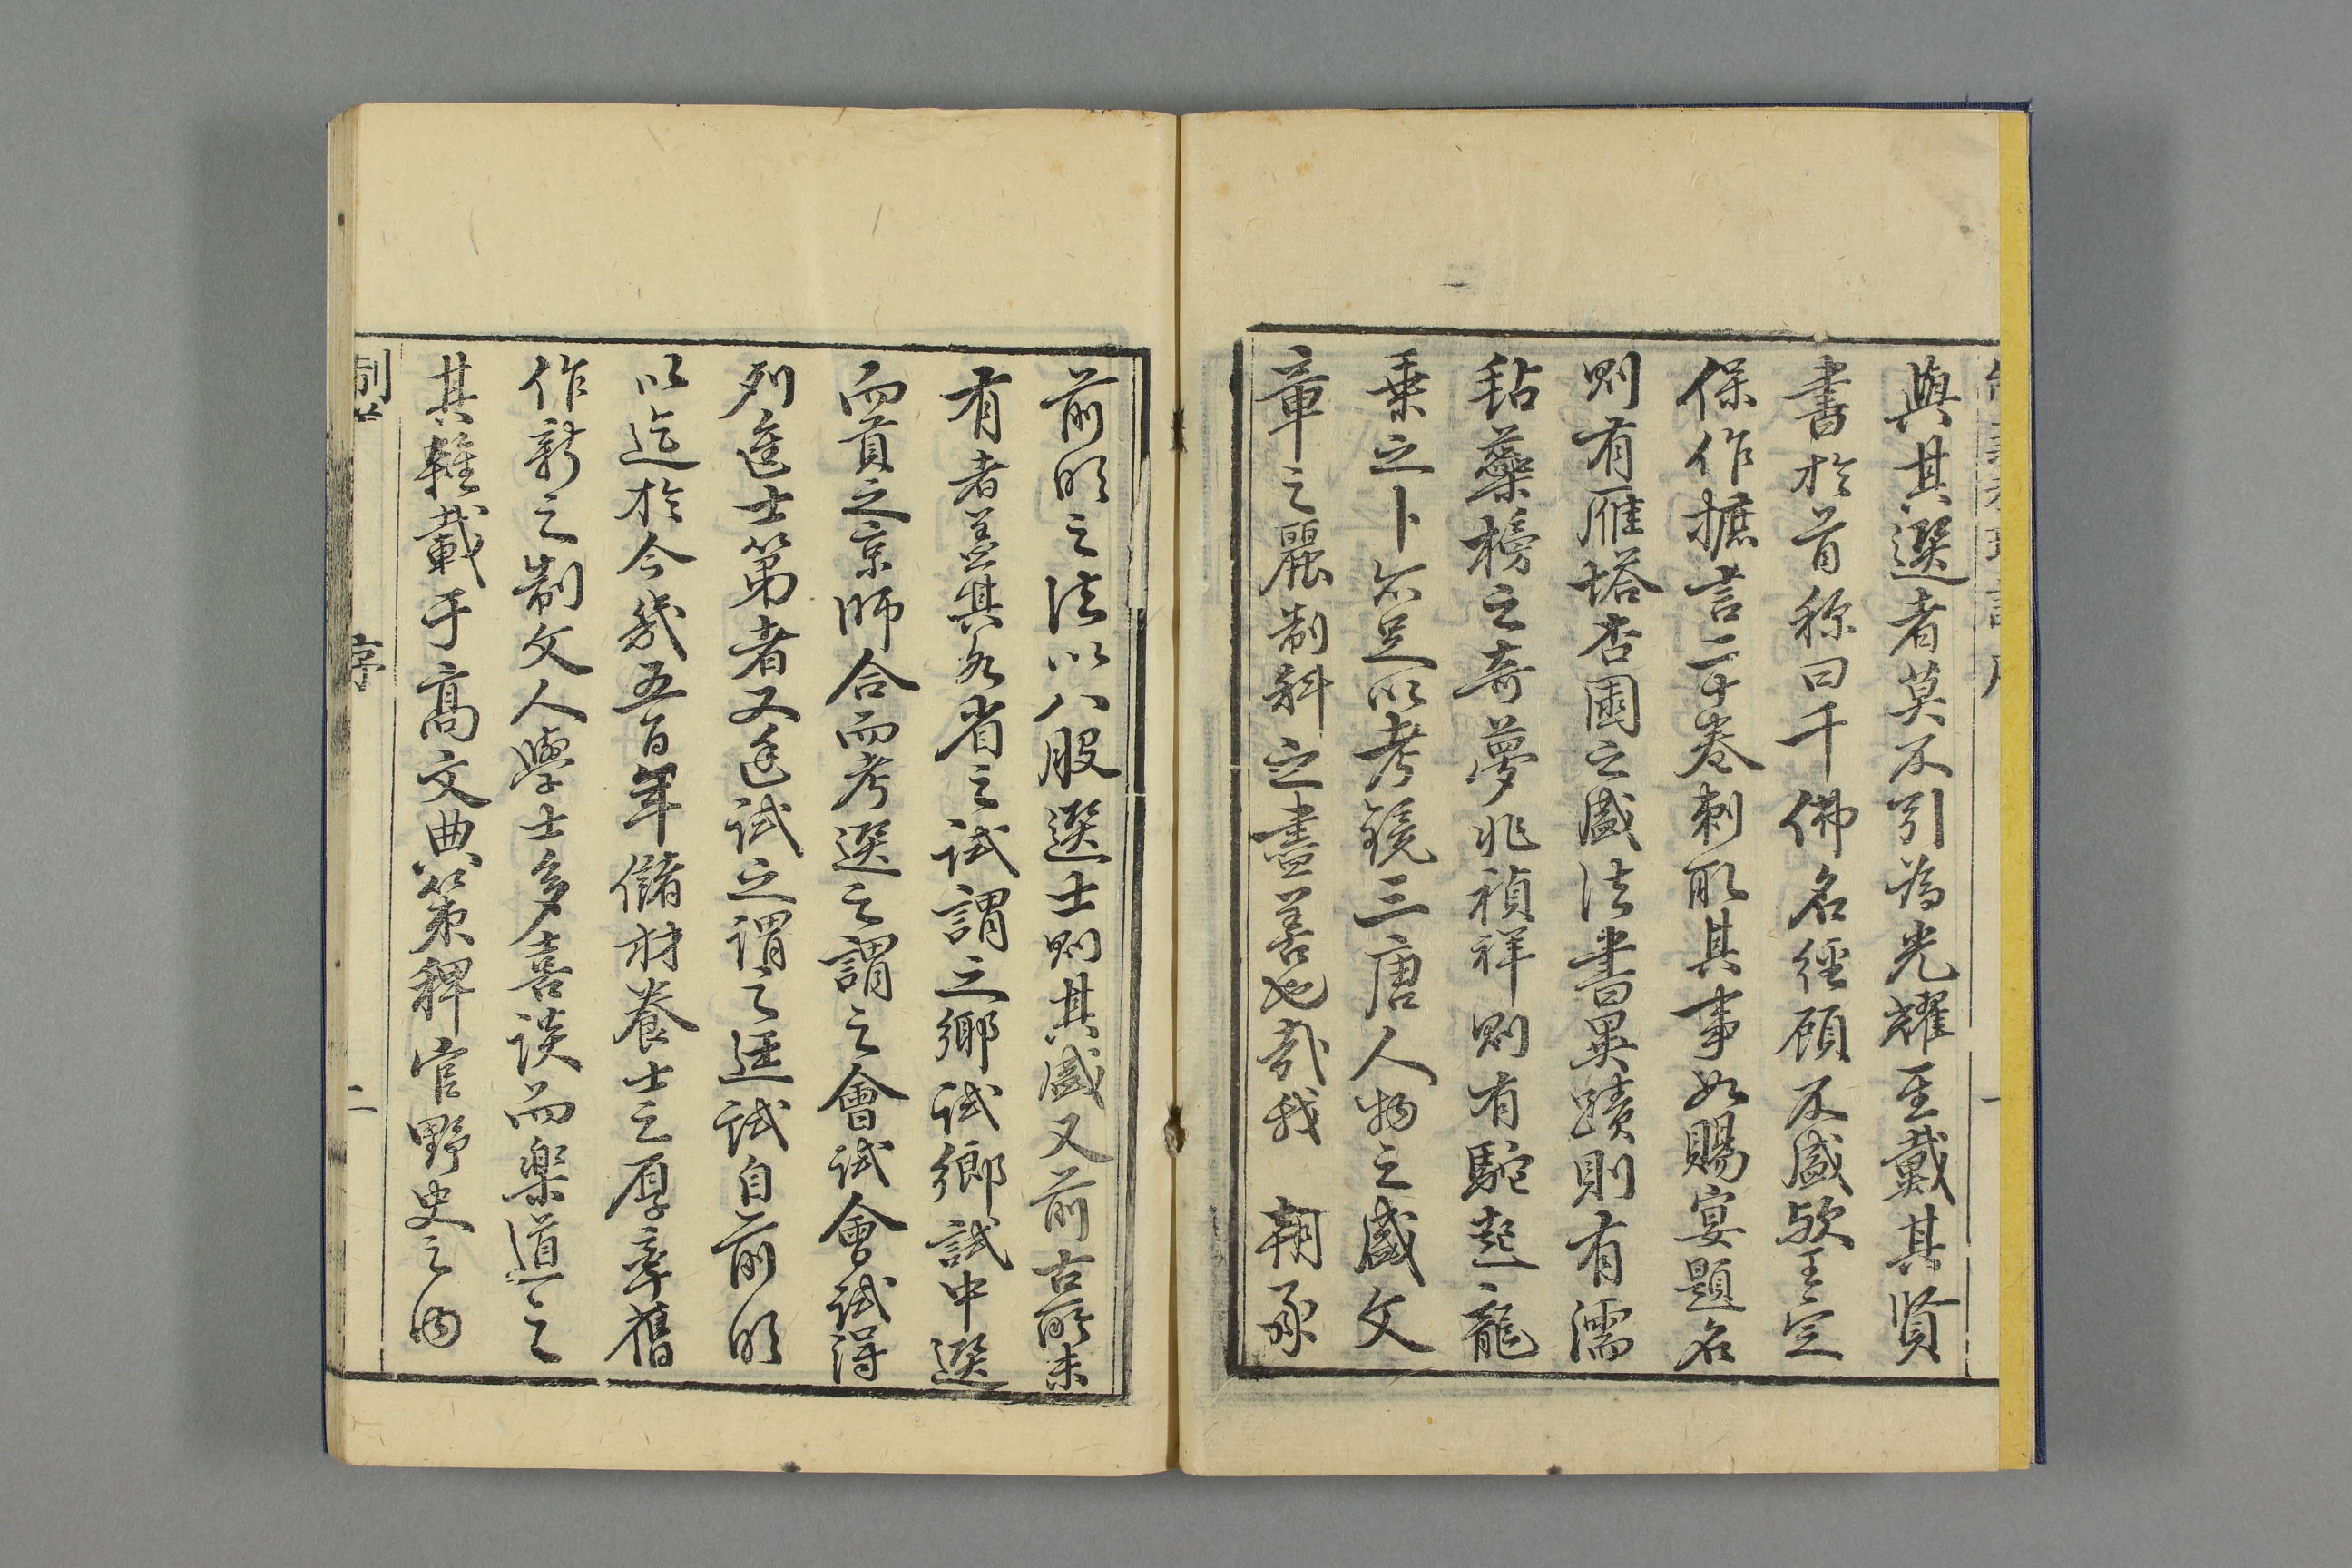 與其選者莫不引為光耀至戴其賢
書於首称曰千佛名經顧不盛欤王定
保作摭言二十卷刺取其事如賜宴題名
则有雁塔杏園之盛法書異蹟則有濡
毡蘂榜之奇夢兆禎祥则有駝起龍
乗之卜亦足以考鏡三唐人物之盛文
章之麗制科之盡善也哉我 朝承
前明之法以八股選士则其盛又前古所未
有者盖其各省之試謂之鄉試鄉試中選
而貢之京師合而考選之謂之會試會試得
列進士第者又廷試之謂之廷試自前明
以迄於今幾五百年儲材養士之厚率舊
作新之制文人學士多喜談而樂道之
其雜載于高文典策稗官野史之内
序
二